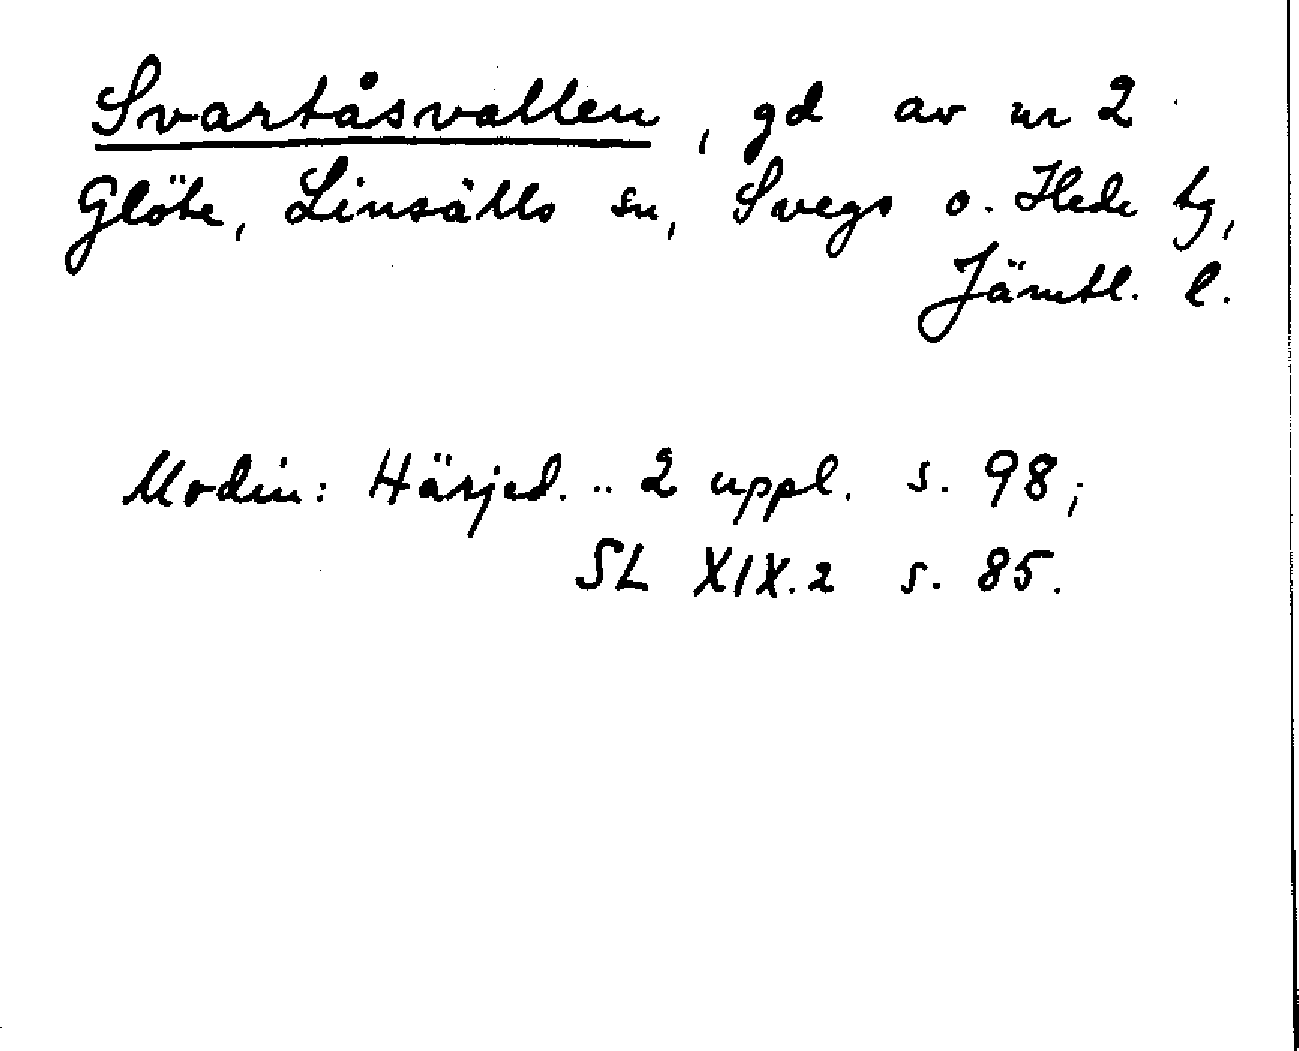 Svartåsvallen, gd av nr 2
Glöte, Linsälls sn, Svegs o. Hede tg,
Jämtl. l.
Modin: Härjed. .. 2 uppl. s. 98;
SL XIX.2 s. 85.